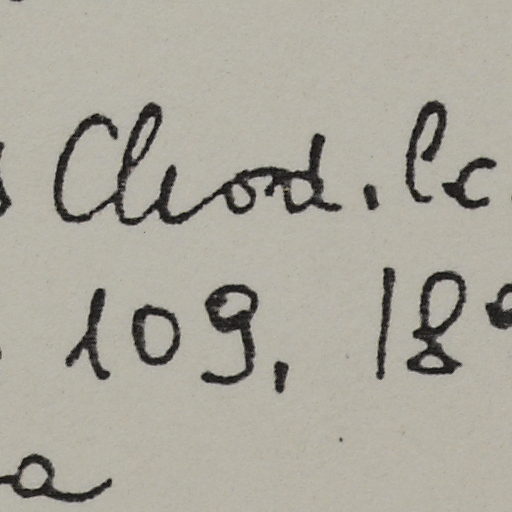 Chod. l.c.
109, 189
a